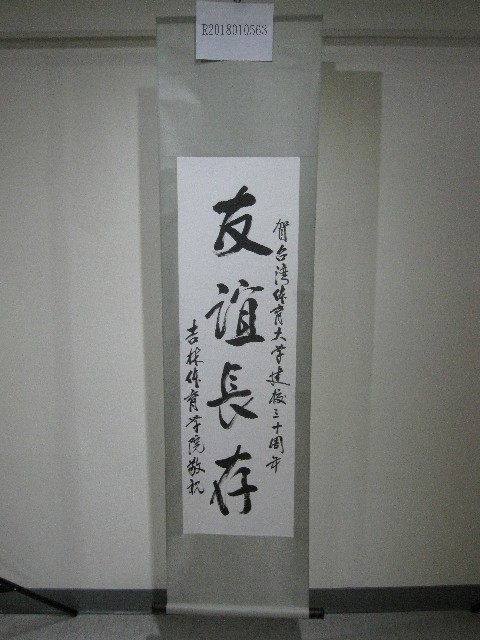 R2018010563
賀台湾体育大学建校三十周年
友誼長存
吉林体育学院敬祝